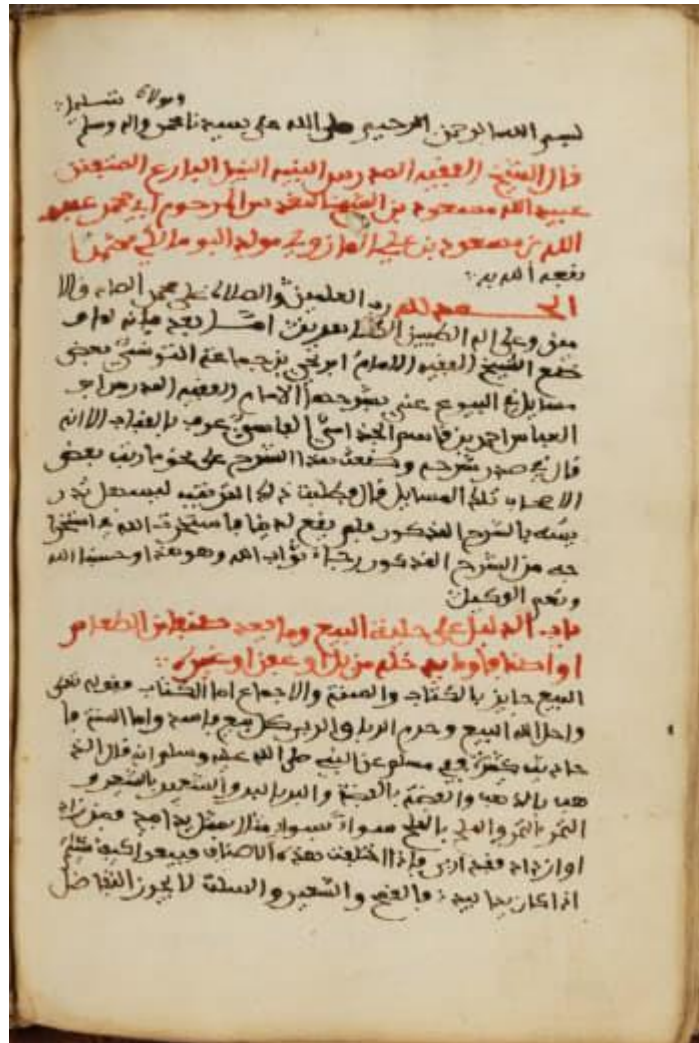 ومولانا تسليما
بسم الله الرحمن الرحيم صلى الله على سيدنا محمد واله وسلم
قال الشيخ الفقيه المدرس النبيه النبيل البارع المتفنن
عبيد الله مسعود بن الفقيه المرحوم ابي محمد عبد
الله بن مسعود بن علي
نفعه الله به
الحمد لله رب العلمين والصلاة على محمد
وعلى اله الطيبين اما بعد فانه لما
وضع الشيخ الفقيه الامام ابو يحي بن جماعة التونسي بعض
مسايل في البيوع عني بشرحها الامام الفقيه المدرس ابو
العباس احمد بن قاسم الجذامي الفاسي عرف بالقباب الا انه
قال في صدر شرحه وضعت هذا الشرح على نحو ما رتب بعض
الاصحاب تلك المسايل قال وطلبنا ذلك الترتيب ليسهل
بالشرح المذكور فلم يقع لدينا فاستخرت الله في استخرا
جه من الشرح المذكور رجاء ثواب الله وهو حسبنا الله
ونعم الوكيل
باب الدليل على حلية البيع وما يعد صنفا من الطعام
او اصنافا وما فيه
البيع جايز بالكتاب والسنة والاجماع اما الكتاب فقوله تعلى
واحل الله البيع وحرم الربا كل بيع فاسد واما السنة فا
حاديث كثيرة ففي مسلم عن النبي صلى الله عليه وسلم انه قال الذ
هب بالذهب والفضة بالفضة والبر بالبر والشعير بالشعير و
التمر بالتمر والملح بالملح سواء بسواء مثلا بمثل يدا بيد فمن زاد
او ازداد فقد اربى فاذا اختلفت هذه الاصناف فبيعوا كيف شئتم
اذا كان يدا بيد فالقمح والشعير والسلت لا يجوز التفاضل